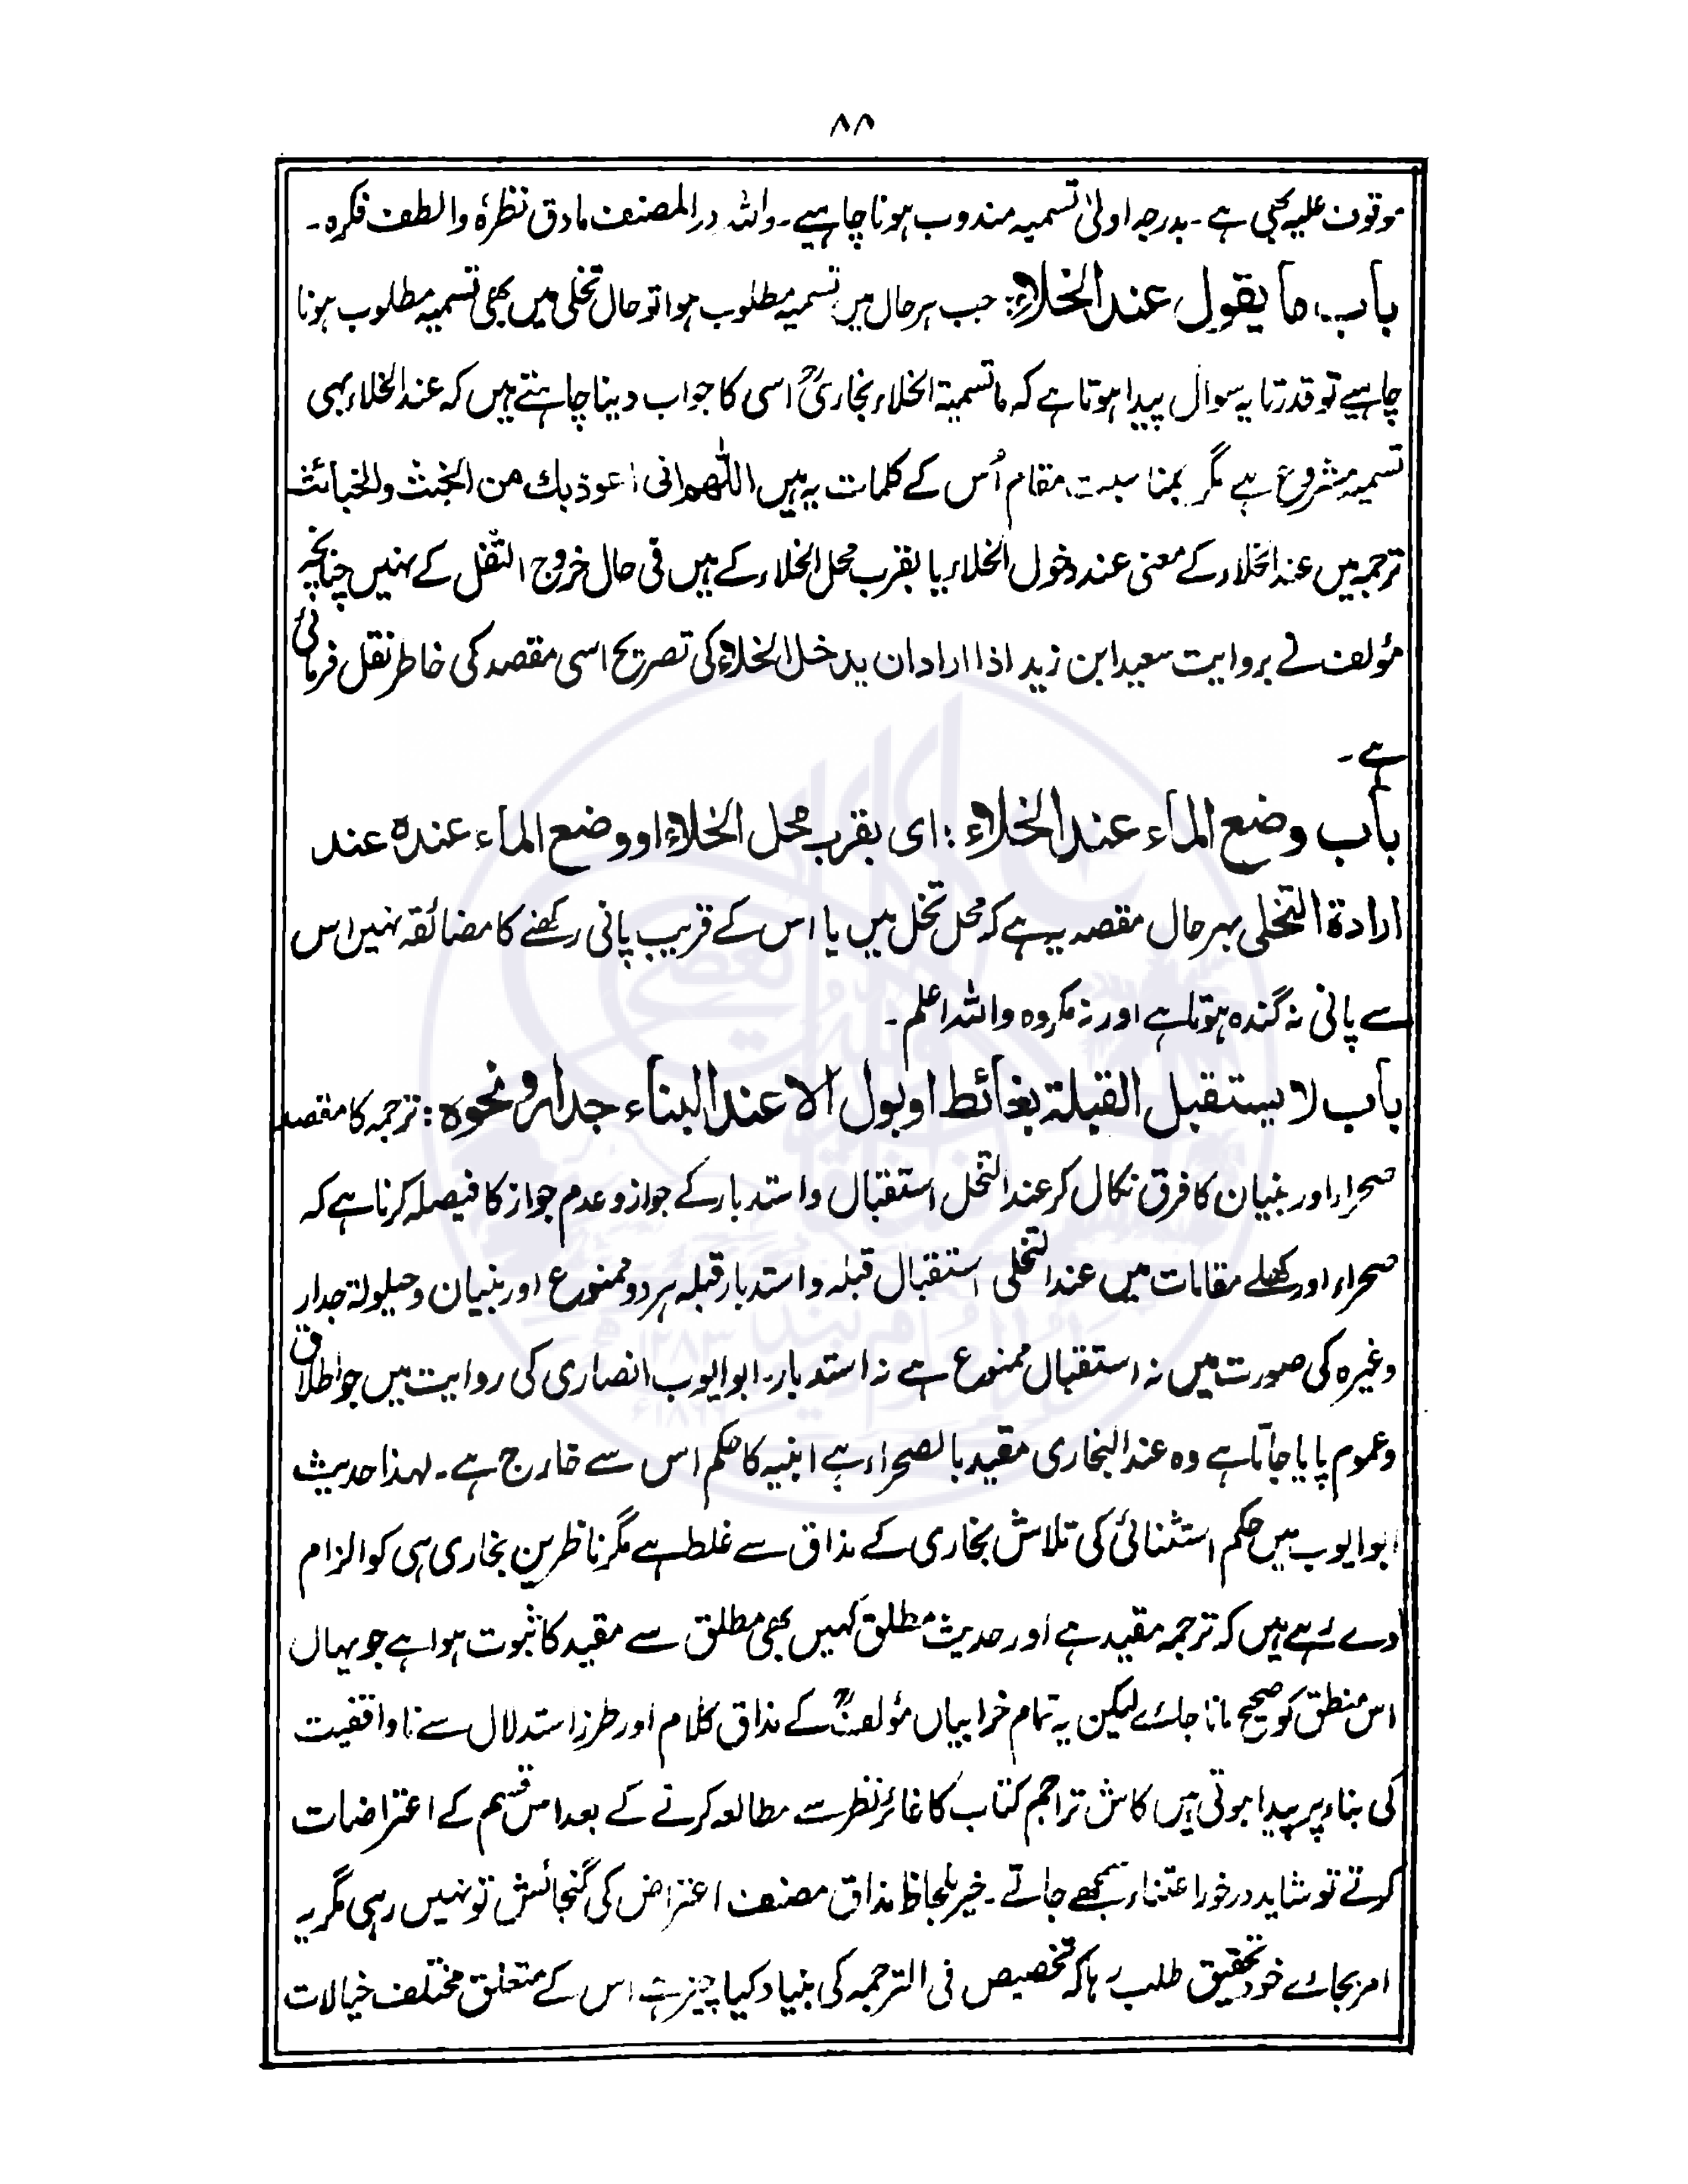 ۸۸
موقوف علیہ بھی ہے۔ بدرجہ اولیٰ تسمیہ مندوب ہونا چاہیے۔ وللہ در المصنف مادق نظرہٗ والطف فکرہ۔
باب ما یقول عند الخلاء: جب ہر حال میں تسمیہ مطلوب ہوا تو حال تخلی میں بھی تسمیہ مطلوب ہونا
چاہیے تو قدرتا یہ سوال پیدا ہوتا ہے کہ ما تسمیۃ الخلاء بخاریؒ اسی کا جواب دینا چاہتے ہیں کہ عند الخلاء بھی
تسمیہ مشروع ہے مگر بمناسبت مقام اُس کے کلمات یہ ہیں اللّٰھم انی اعوذ بك من الخبث والخبائث
ترجمہ میں عند الخلاء کے معنی عند دخول الخلاء یا بقرب محل الخلاء کے ہیں فی حال خروج الثقل کے نہیں چنانچہ
مؤلف نے بروایت سعید ابن زید اذا اراد ان یدخل الخلاء کی تصریح اسی مقصد کی خاطر نقل فرمائی
ہے۔
باب وضع الماء عند الخلاء: ای بقرب محل الخلاء او وضع الماء عندہ عند
ارادۃ التخلی بہر حال مقصد یہ ہے کہ محل تخلی میں یا اس کے قریب پانی رکھنے کا مضائقہ نہیں اس
سے پانی نہ گندہ ہوتا ہے اور نہ مکروہ واللہ اعلم۔
باب لا یستقبل القبلۃ بغائط او بول الا عند البناء جدار و نحوہ: ترجمہ کا مقصد
صحراء اور بنیان کا فرق نکال کر عند التخلی استقبال و استدبار کے جواز و عدم جواز کا فیصلہ کرنا ہے کہ
صحراء اور کھلے مقامات میں عند التخلی استقبال قبلہ و استدبار قبلہ ہر دو ممنوع اور بنیان و حیلولۃ جدار
وغیرہ کی صورت میں نہ استقبال ممنوع ہے نہ استدبار۔ ابو ایوب انصاری کی روایت میں جو اطلاق
وعموم پایا جاتا ہے وہ عند البخاری مقید بالصحراء ہے ابنیہ کا حکم اس سے خارج ہے۔ لہذا حدیث
ابو ایوب میں حکم استثنائی کی تلاش بخاری کے مذاق سے غلط ہے مگر ناظرین بخاری ہی کو الزام
دے رہے ہیں کہ ترجمہ مقید ہے اور حدیث مطلق کہیں بھی مطلق سے مقید کا ثبوت ہوا ہے جو یہاں
اس منطق کو صحیح مانا جائے لیکن یہ تمام خرابیاں مؤلفؒ کے مذاق کلام اور طرز استدلال سے ناواقفیت
کی بناء پر پیدا ہوتی ہیں کاش تراجم کتاب کا غائر نظر سے مطالعہ کرنے کے بعد اس قسم کے اعتراضات
کرتے تو شاید درخور اعتناء سمجھے جاتے۔ خیر بلحاظ مذاق مصنف اعتراض کی گنجائش تو نہیں رہی مگر یہ
امر بجائے خود تحقیق طلب رہا کہ تخصیص فی الترجمہ کی بنیاد کیا چیز ہے اس کے متعلق مختلف خیالات